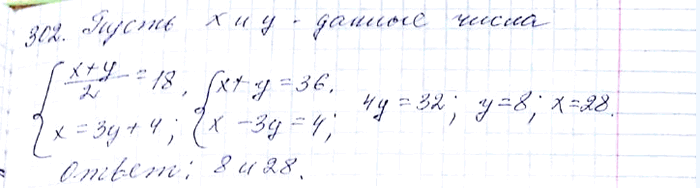 302. Пусть x и y - данные числа
{ (x+y)/2 = 18, { x + y = 36. 
{ x = 3y + 4; { x - 3y = 4; 4y = 32; y = 8; x = 28.
Ответ: 8 и 28.